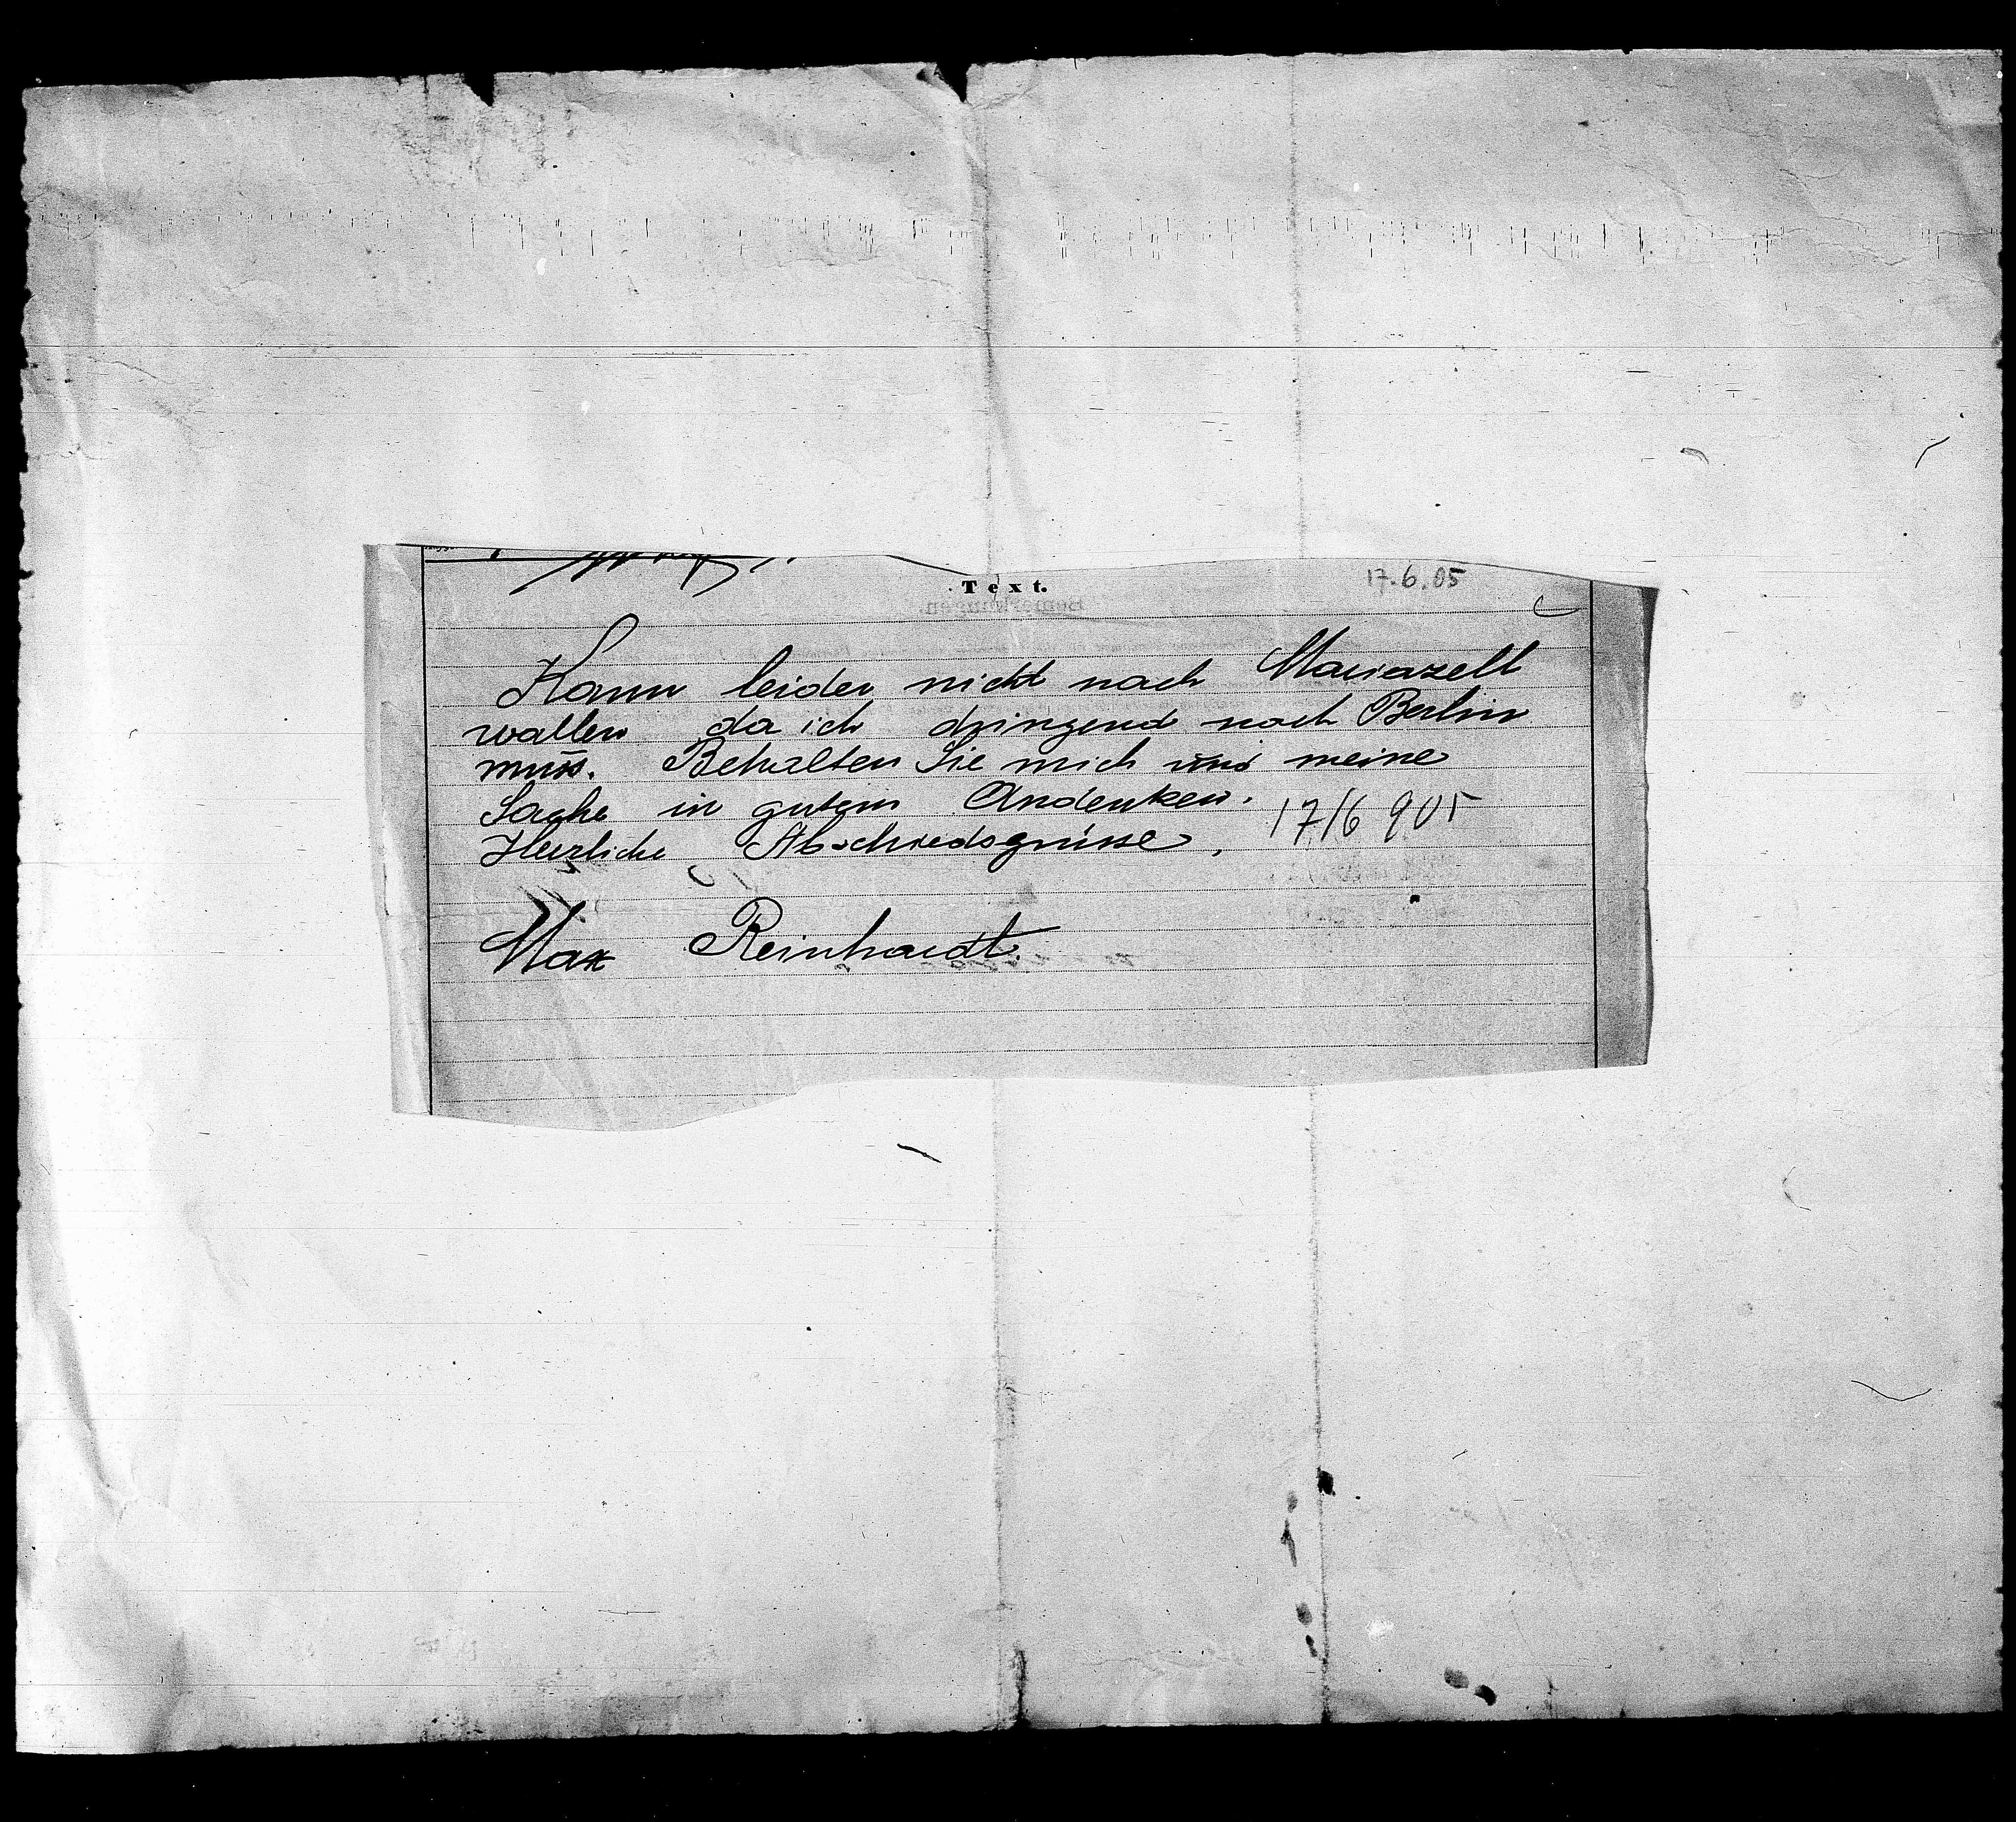 Text.
17.6.05
Kann leider nicht nach Mariazell
wallen da ich dringend nach Berlin
muss. Behalten Sie mich und meine
Sache in gutem Andenken.
Herzliche Abschiedsgrüsse, 17/6 905
Max Reinhardt.